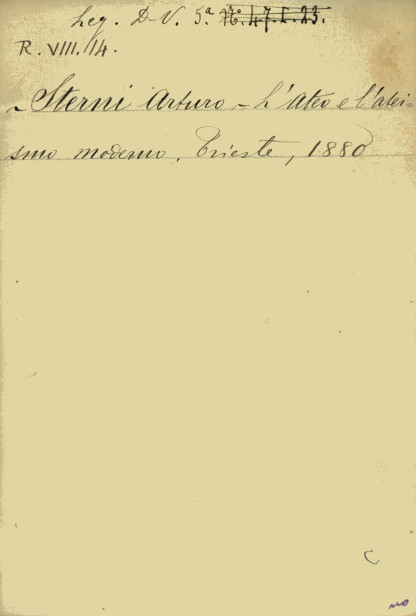 Leg. D-V. 5.ª N.º 47. I. 23.
R. VIII. 14.
~ Sterni Arturo ~ L'Ateo e l'atei-
smo moderno. Trieste, 1880